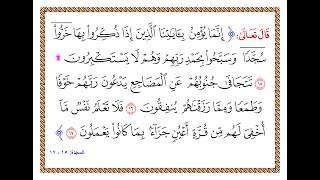 قَالَ تَعَالَىٰ: ﴿ إِنَّمَا يُؤْمِنُ بِـَٔايَٰتِنَا ٱلَّذِينَ إِذَا ذُكِّرُوا۟ بِهَا خَرُّوا۟
سُجَّدًا وَسَبَّحُوا۟ بِحَمْدِ رَبِّهِمْ وَهُمْ لَا يَسْتَكْبِرُونَ ۩
١٥ تَتَجَافَىٰ جُنُوبُهُمْ عَنِ ٱلْمَضَاجِعِ يَدْعُونَ رَبَّهُمْ خَوْفًا
وَطَمَعًا وَمِمَّا رَزَقْنَٰهُمْ يُنفِقُونَ ١٦ فَلَا تَعْلَمُ نَفْسٌ مَّآ
أُخْفِىَ لَهُم مِّن قُرَّةِ أَعْيُنٍ جَزَآءًۢ بِمَا كَانُوا۟ يَعْمَلُونَ ١٧ ﴾
السجدة: ١٥ - ١٧